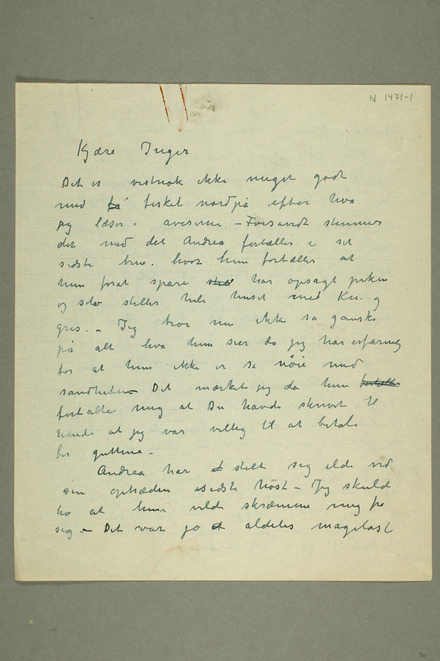 N 1471-1
Kjære Inger
Det er vistnok ikke meget godt
med på fisket nordpå efter hva
jeg læser i aviserne – Forsaavidt stemmer
det med det Andrea fortæller i sit
sidste brev. hvor hun fortæller at
hun for at spare har opsagt piken
og selv steller hele huset med Ku. og
gris. – Jeg tror nu ikke så ganske
på alt hva hun sier da jeg har erfaring
for at hun ikke er så nöie med
sandheten – Det merket jeg da hun fortæller
fortalte mig at Du havde skrevet til
hende at jeg var villig til at betale
for guttene.
Andrea har stelt sig ilde ved
sin optræden i sidste höst – Jeg skuld
tro at hun vilde skræmme mig fra
sig – Det var jo aldeles magelöst